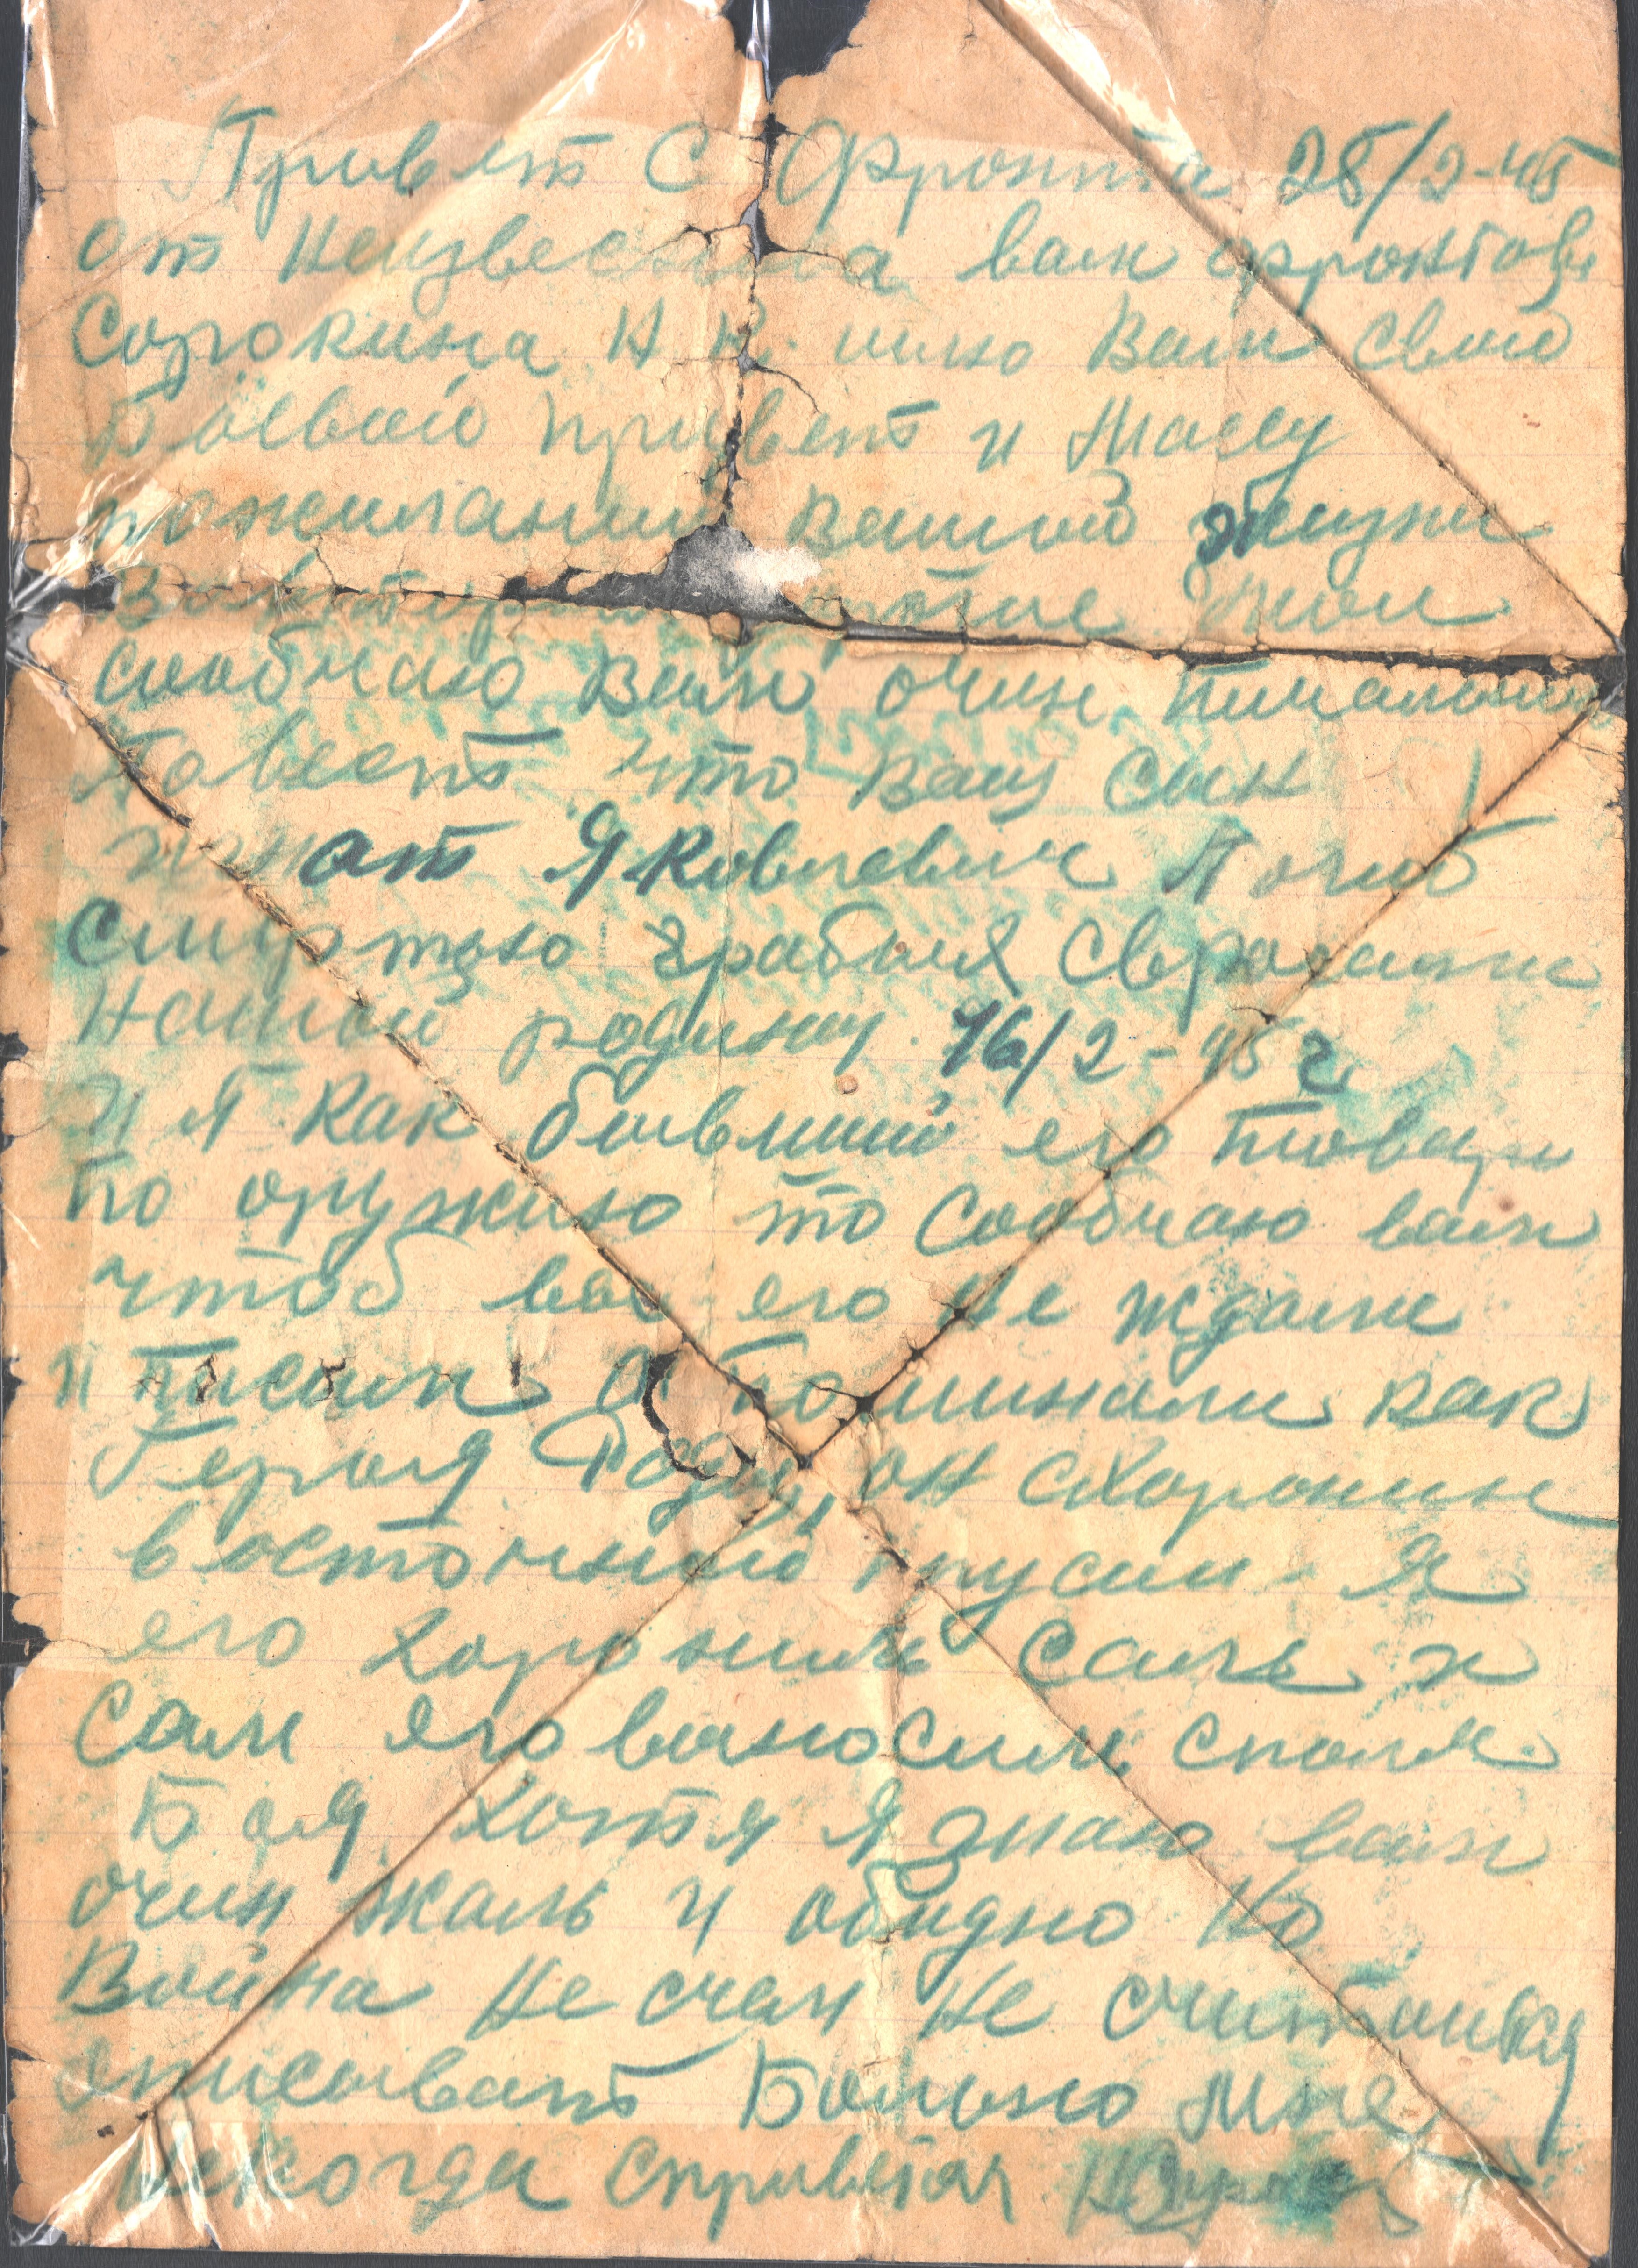 Привет с Фронта 28/2-45
от Неизвестна вам фронтови
Сорокина Н К. шлю Вам свой
Боевой привет и Массу
пожиланий Вашей жизни
сообчаю Вам очин Пичальную
Повест что Ваш сын
Игнат Яковлевич Погиб
смертью храбрых
нашей родины. 16/2-45 г
И Я как бывший его Товарищ
По оружию то сообчаю вам
чтоб вы его не ждали
и писем а Поминали как
Героя Родины он схоронин
восточный прусии Я
его хоронил сам и
сам его выносил споля
Боя, хотя Я знаю вам
очин жаль и обидно Но
Война Не счем Не считаится
описыват Больно Мне
некогда сприветом